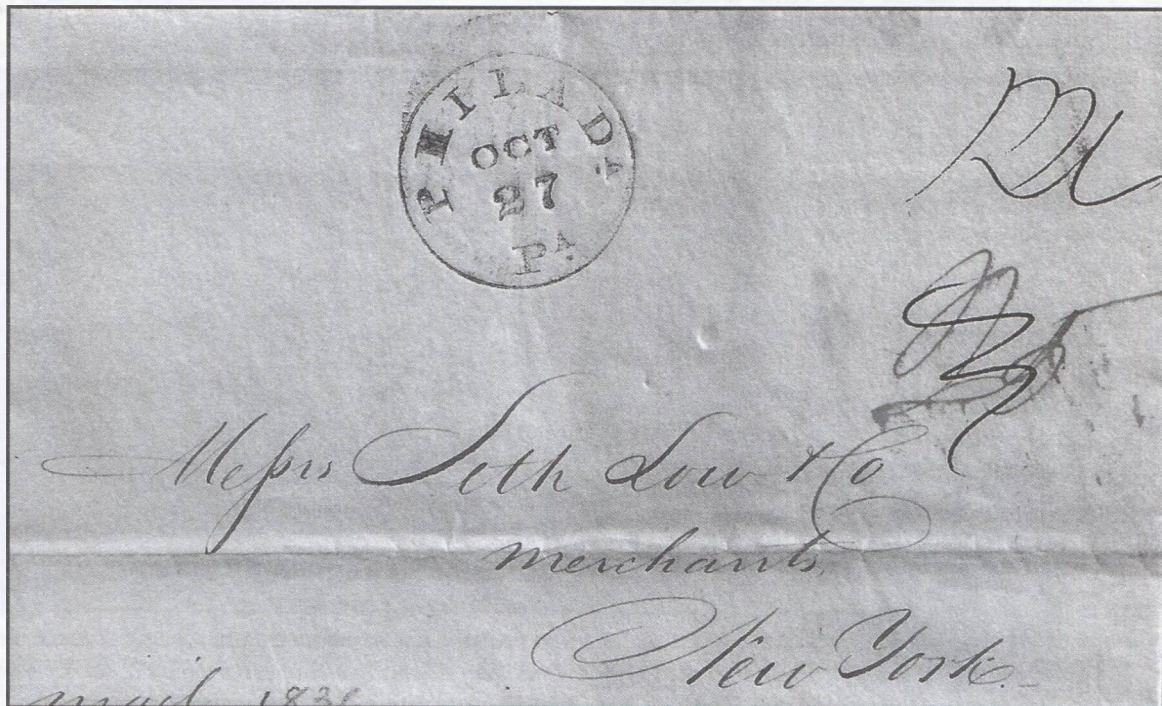 PHILADA
OCT
27
PA
Messrs Seth Low & Co
merchants
New York
mail